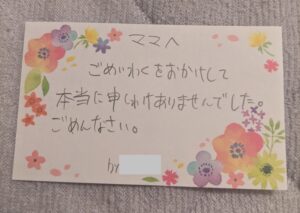 ママへ
ごめいわくをおかけして
本当に申しわけありませんでした。
ごめんなさい。
by